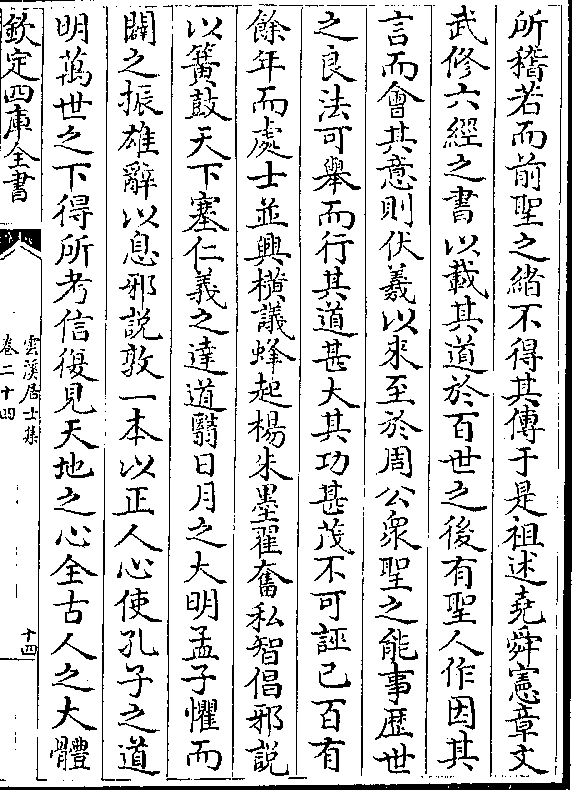 所稽若而前聖之緒不得其傳于是祖述堯舜憲章文
武修六經之書以載其道於百世之後有聖人作因其
言而會其意則伏羲以來至於周公衆聖之能事歴世
之良法可舉而行其道甚大其功甚茂不可誣已百有
餘年而處士並興橫議蜂起楊朱墨翟奮私智倡邪説
以簧鼓天下塞仁義之達道翳日月之大明孟子懼而
闢之振雄辭以息邪説敦一本以正人心使孔子之道
明萬世之下得所考信復見天地之心全古人之大體
欽定四庫全書
雲溪居士集
卷二十四
十四